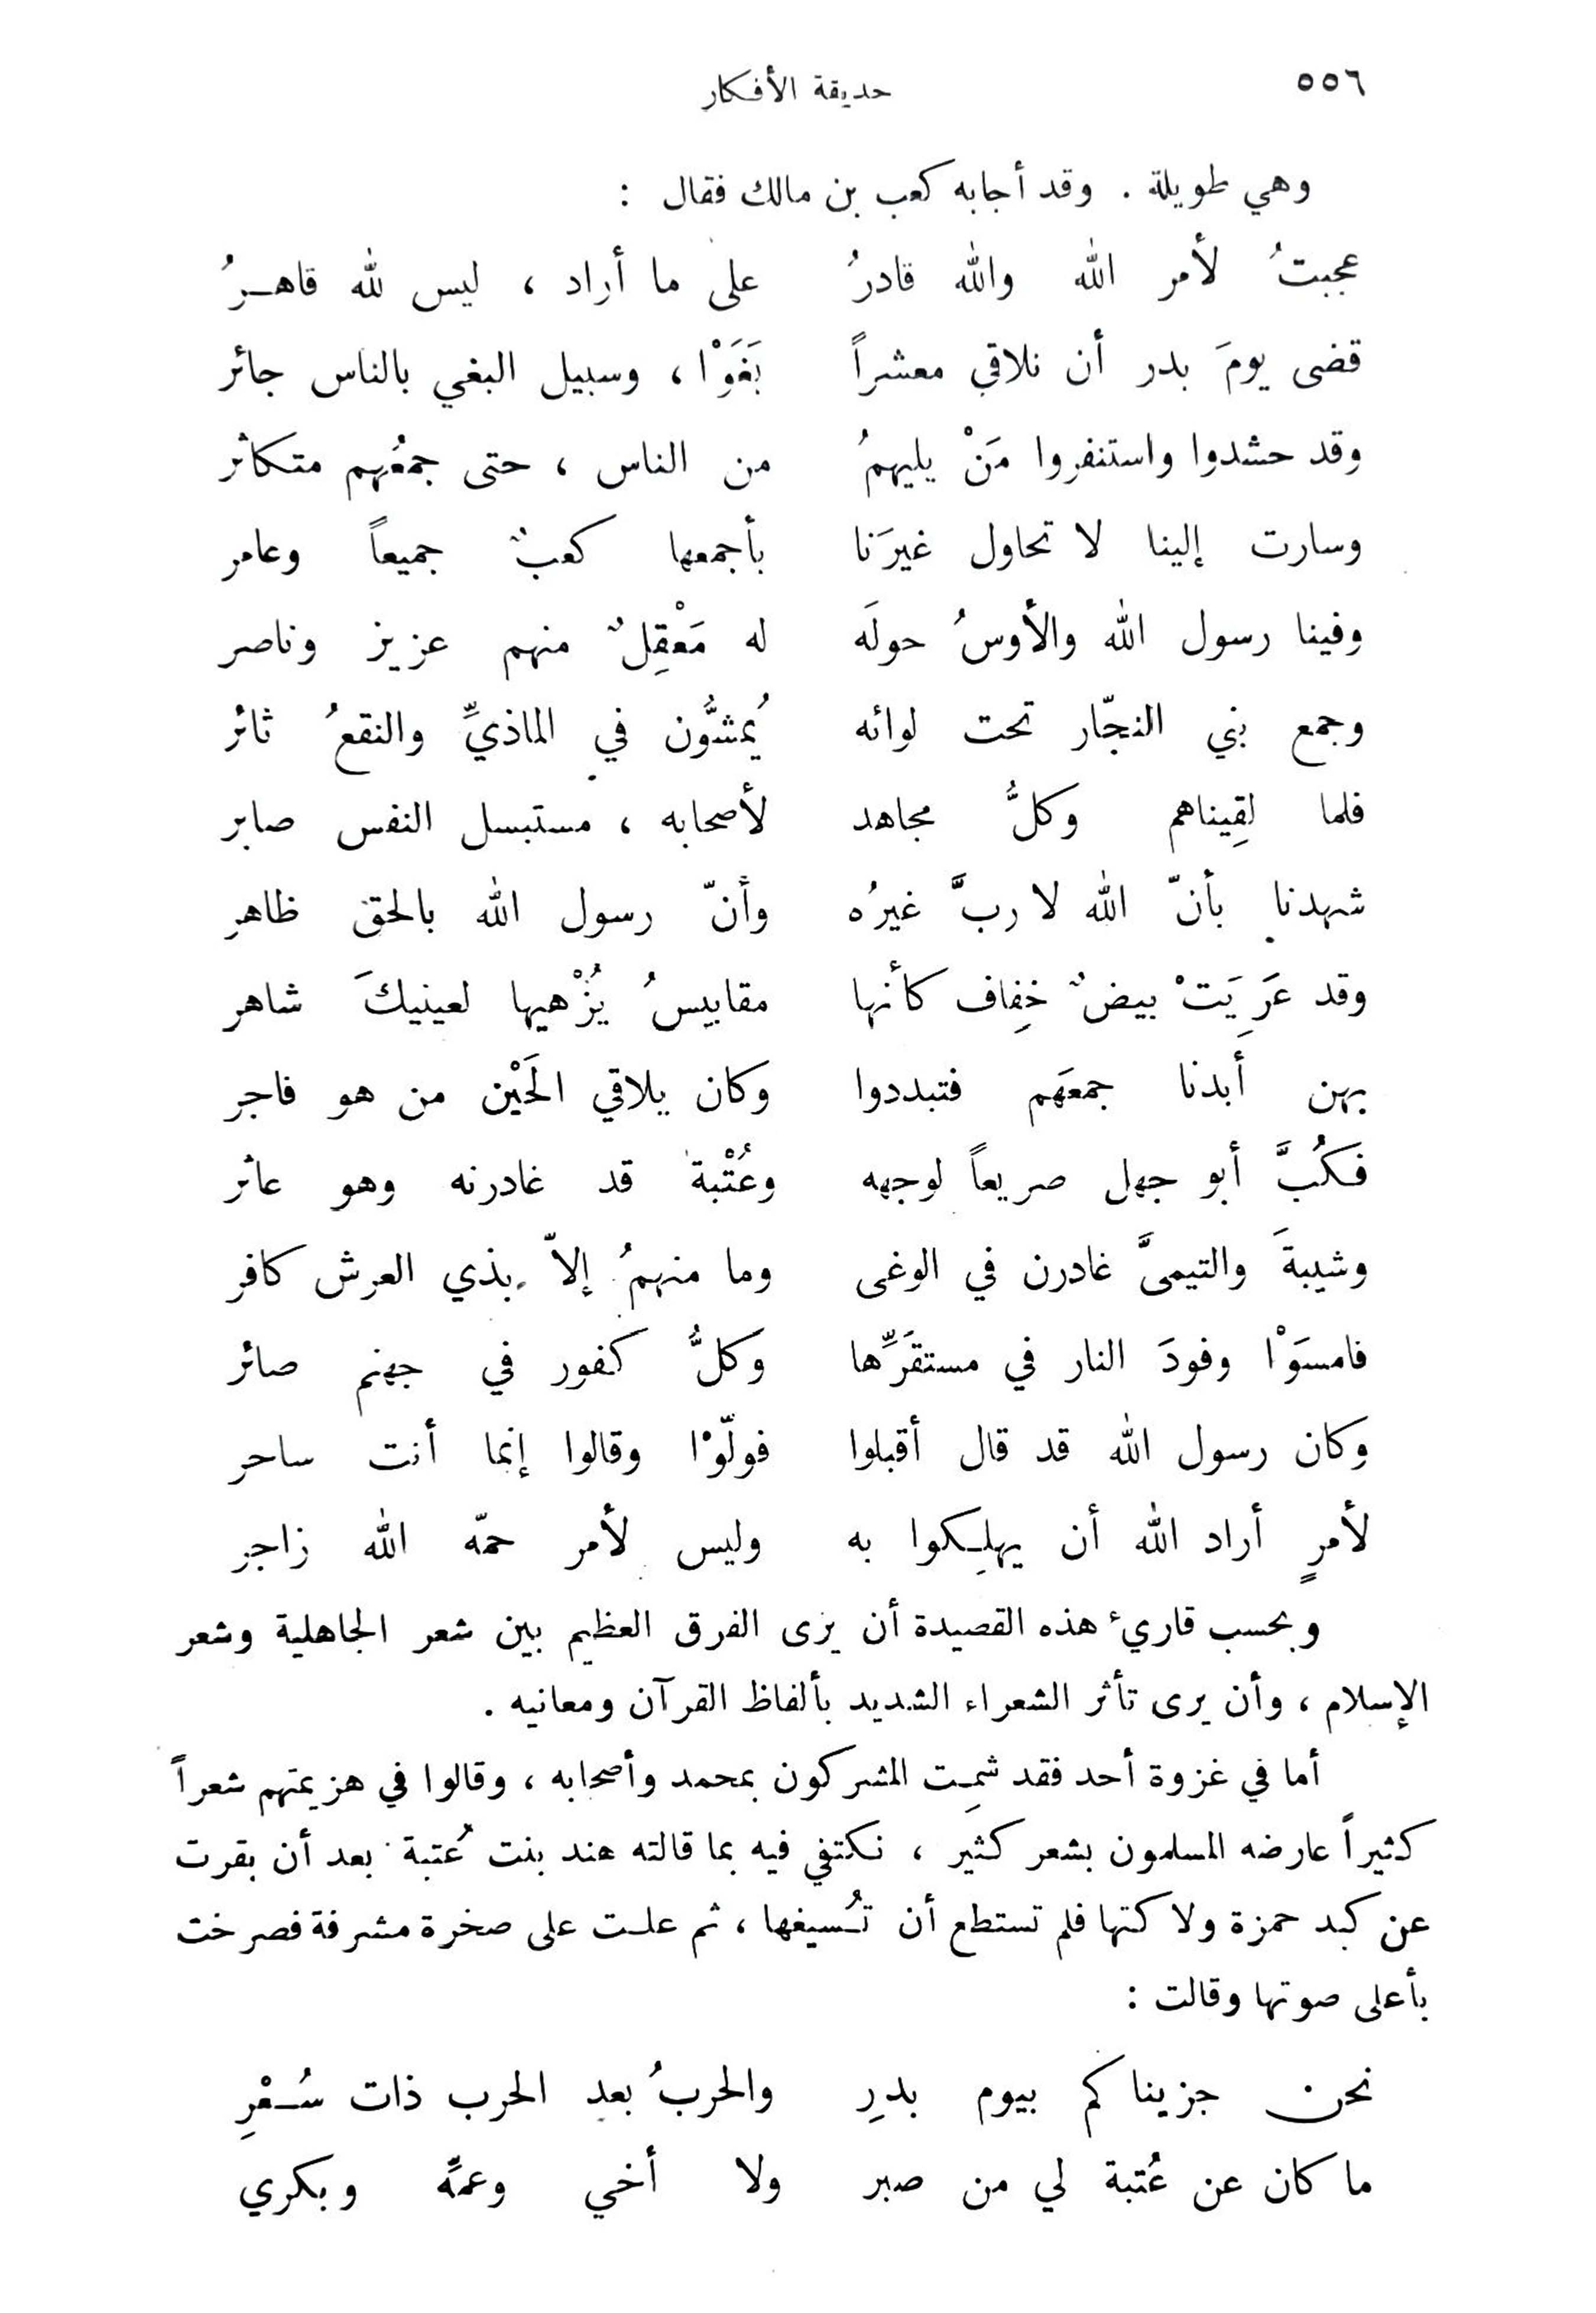 ٥٥٦
حديقة الأفكار
وهي طويلة . وقد أجابه كعب بن مالك فقال :
عجبتُ لأمر الله والله قادرُ على ما أراد ، ليس لله قاهرُ
قضى يومَ بدر أن نلاقي معشراً بَغَوْا ، وسبيل البغي بالناس جائر
وقد حشدوا واستنفروا مَنْ يليهمُ من الناس ، حتى جمعُهم متكاثر
وسارت إلينا لا تحاول غيرَنا بأجمعها كعبٌ جميعاً وعامر
وفينا رسول الله والأوسُ حولَه له مَعْقِلٌ منهم عزيز وناصر
وجمع بني النجّار تحت لوائه يُمشُّون في الماذيِّ والنقعُ ثائر
فلما لقِيناهم وكلُّ مجاهد لأصحابه ، مستبسل النفس صابر
شهدنا بأنّ الله لا ربَّ غيرُه وأنّ رسول الله بالحق ظاهر
وقد عَرِيَتْ بيضٌ خِفاف كأنها مقاييسُ يُزْهيها لعينيكَ شاهر
بهن أبدنا جمعَهم فتبددوا وكان يلاقي الحَيْن من هو فاجر
فكُبَّ أبو جهل صريعاً لوجهه وعُتْبة قد غادرنه وهو عاثر
وشيبةَ والتيمىَّ غادرن في الوغى وما منهمُ إلاّ بذي العرش كافر
فامسَوْا وفودَ النار في مستقَرِّها وكلُّ كفور في جهنم صائر
وكان رسول الله قد قال أقبلوا فولّوْا وقالوا إنما أنت ساحر
لأمرٍ أراد الله أن يهلِكوا به وليس لأمر حمّه الله زاجر
وبحسب قاريء هذه القصيدة أن يرى الفرق العظيم بين شعر الجاهلية وشعر
الإسلام ، وأن يرى تأثر الشعراء الشديد بألفاظ القرآن ومعانيه .
أما في غزوة أحد فقد شمِت المشركون بمحمد وأصحابه ، وقالوا في هزيمتهم شعراً
كثيراً عارضه المسلمون بشعر كثير ، نكتفي فيه بما قالته هند بنت عُتبة بعد أن بقرت
عن كبد حمزة ولاكتها فلم تستطع أن تُسيغها ، ثم علت على صخرة مشرفة فصرخت
بأعلى صوتها وقالت :
نحن جزيناكم بيوم بدرِ والحربُ بعد الحرب ذات سُعْرِ
ما كان عن عُتبة لي من صبر ولا أخي وعمِّه وبكري